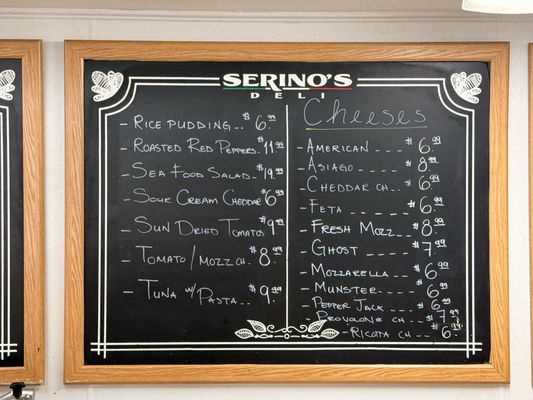 SERINO'S
DELI
- RICE PUDDING.. $6.99
- ROASTED RED PEPPERS. $11.99
- SEA FOOD SALAD.. $19.99
- SOUR CREAM CHEDDAR $6.99
- SUN DRIED TOMATOS $9.99
- TOMATO/MOZZ CH. $8.99
- TUNA W/ PASTA.. $9.99
CHEESES
- AMERICAN ---- $6.99
- ASIAGO ---- $8.99
- CHEDDAR CH -- $6.99
- FETA ---- $6.99
- FRESH MOZZ -- $8.99
- GHOST ---- $7.99
- MOZZARELLA --- $6.99
- MUNSTER ---- $6.99
- PEPPER JACK --- $6.99
- PROVOLONE CH -- $7.99
- RICOTA CH -- $6.99